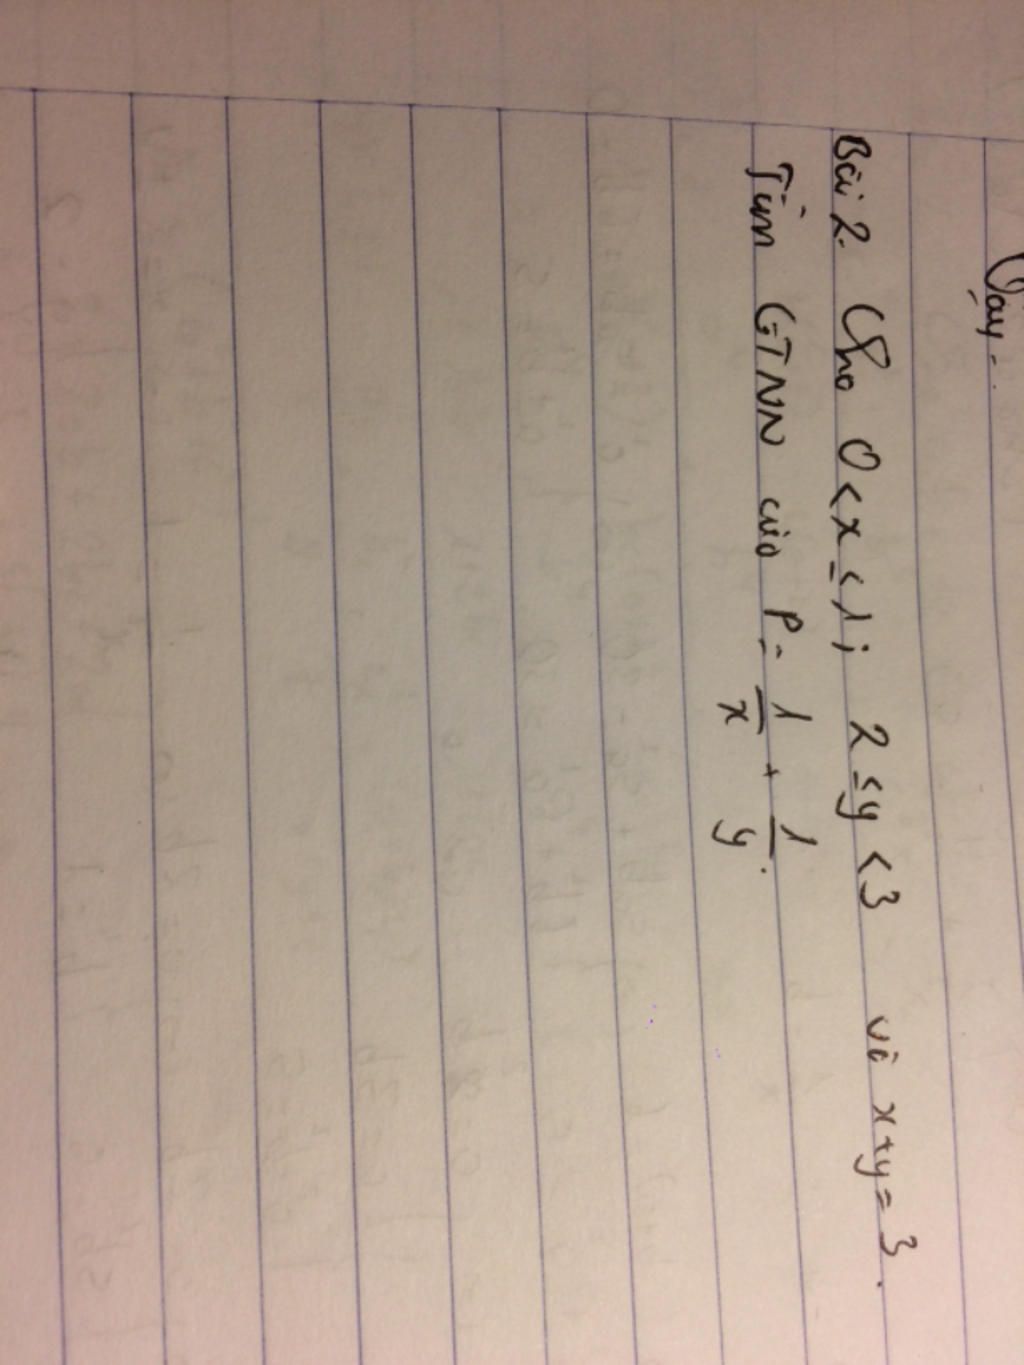 Vậy...
Bài 2. Cho 0 < x ≤ 1; 2 ≤ y < 3 và x+y = 3.
Tìm GTNN của P = 1/x + 1/y.